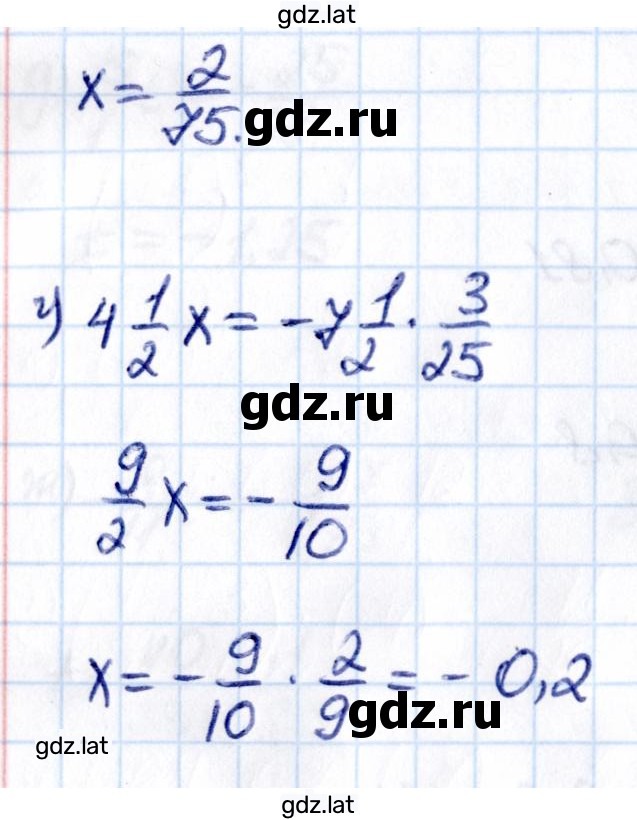 gdz.lat
x = 2/75.
gdz.ru
г) 4 1/2 x = -7 1/2 · 3/25
gdz.ru
9/2 x = - 9/10
x = - 9/10 · 2/9 = - 0,2
gdz.ru
gdz.lat
gdz.lat